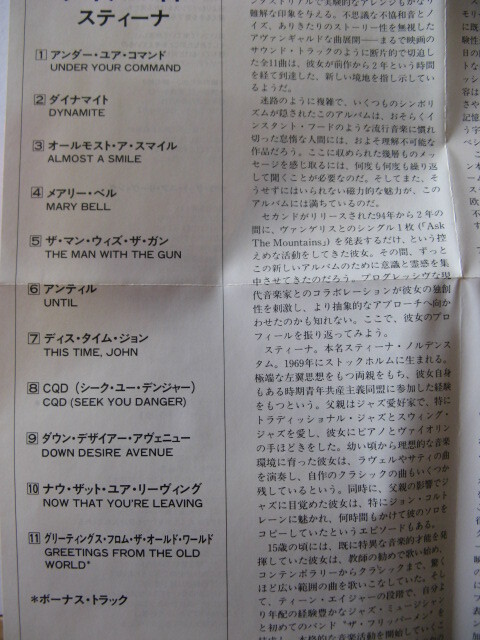 スティーナ
1 アンダー・ユア・コマンド
UNDER YOUR COMMAND
2 ダイナマイト
DYNAMITE
3 オールモスト・ア・スマイル
ALMOST A SMILE
4 メアリー・ベル
MARY BELL
5 ザ・マン・ウィズ・ザ・ガン
THE MAN WITH THE GUN
6 アンティル
UNTIL
7 ディス・タイム・ジョン
THIS TIME, JOHN
8 CQD（シーク・ユー・デンジャー）
CQD (SEEK YOU DANGER)
9 ダウン・デザイアー・アヴェニュー
DOWN DESIRE AVENUE
10 ナウ・ザット・ユア・リーヴィング
NOW THAT YOU'RE LEAVING
11 グリーティングス・フロム・ザ・オールド・ワールド
GREETINGS FROM THE OLD
WORLD*
*ボーナス・トラック
難解な印象を与える。不思議な不協和音とノ
イズ、ありきたりのストーリー性を無視した
アヴァンギャルドな曲展開──まるで映画の
サウンド・トラックのように断片的で切迫し
た全11曲は、彼女が前作から2年という時間
を経て到達した、新しい境地を指し示してい
るようだ。
迷路のように複雑で、いくつものシンボリ
ズムが隠されたこのアルバムは、おそらくイ
ンスタント・フードのような流行音楽に慣れ
切った怠惰な人間には、およそ理解不可能な
作品だろう。ここに収められた幾層ものメッ
セージを感じ取るには、何度も何度も繰り返
して聞くことが必要なのだ。そしてまた、そ
うせずにはいられない磁力的な魅力が、この
アルバムには満ちているのだ。
セカンドがリリースされた94年から2年の
間に、ヴァンゲリスとのシングル1枚(「Ask
The Mountains」)を発表するだけ、という控
えめな活動をしてきた彼女。その間、ずっと
この新しいアルバムのために意識と霊感を集
中させてきたのだろう。プログレッシヴな現
代音楽家とのコラボレーションが彼女の独創
性を刺激し、より抽象的なアプローチへ向か
わせたのかも知れない。ここで、彼女のプロ
フィールを振り返ってみよう。
スティーナ。本名スティーナ・ノルデンス
タム。1969年にストックホルムに生まれる。
極端な左翼思想をもつ両親をもち、彼女自身
もある時期青年共産主義同盟に参加した経験
をもつという。父親はジャズ愛好家で、特に
トラディッショナル・ジャズとスウィング・
ジャズを愛し、彼女にピアノとヴァイオリン
の手ほどきをした。幼い頃から理想的な音楽
環境に育った彼女は、ラヴェルやサティの曲
を演奏し、自作のクラシックの曲もいくつか
残しているという。同時に、父親の影響でジ
ャズに目覚めた彼女は、特にジョン・コルト
レーンに魅かれ、何時間もかけて彼のソロを
コピーしていたというエピソードもある。
15歳の頃には、既に特異な音楽的才能を発
揮していた彼女は、教師の勧めで歌い始め、
コンテンポラリーからクラシックまで、驚く
ほど広い範囲の曲を歌いこなしていた。そし
て、ティーン・エイジャーの段階で、自分よ
り年配の経験豊かなジャズ・ミュージシャン
と初めてのバンド